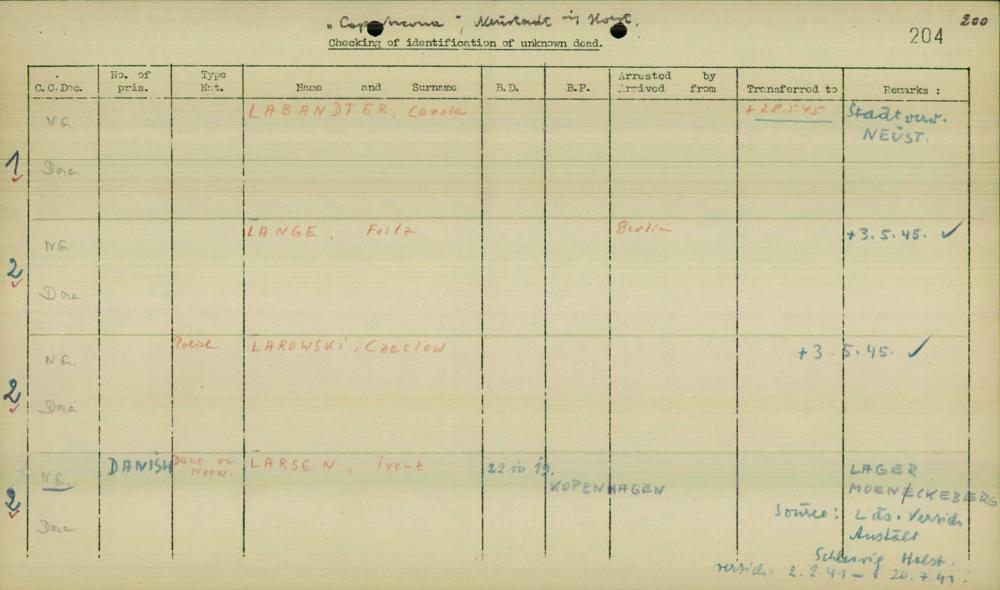 "Cap Arcona", Neustadt in Holst.
200
204
Checking of identification of unknown dead.
C.C.Doc. No. of pris. Type Nat. Name and Surname B.D. B.P. Arrested by Arrived from Transferred to Remarks :
N.G. LABANDTER, Carola +28.5.45 Stadtverw.
NEUST.
1 Dora
N.G. LANGE, Fritz Berlin +3.5.45. ✓
2 Dora
N.G. Polish LAROWSKI, Czeslow +3.5.45. ✓
2 Dora
N.G. DANISH Dane or Norw. LARSEN, 22.10 19. KOPENHAGEN LAGER
MOENECKEBERG
2 Dora
Source: Lds. Versich.
Anstalt
Schleswig Holst.
versich. 2.2.41 – 20.7.41.